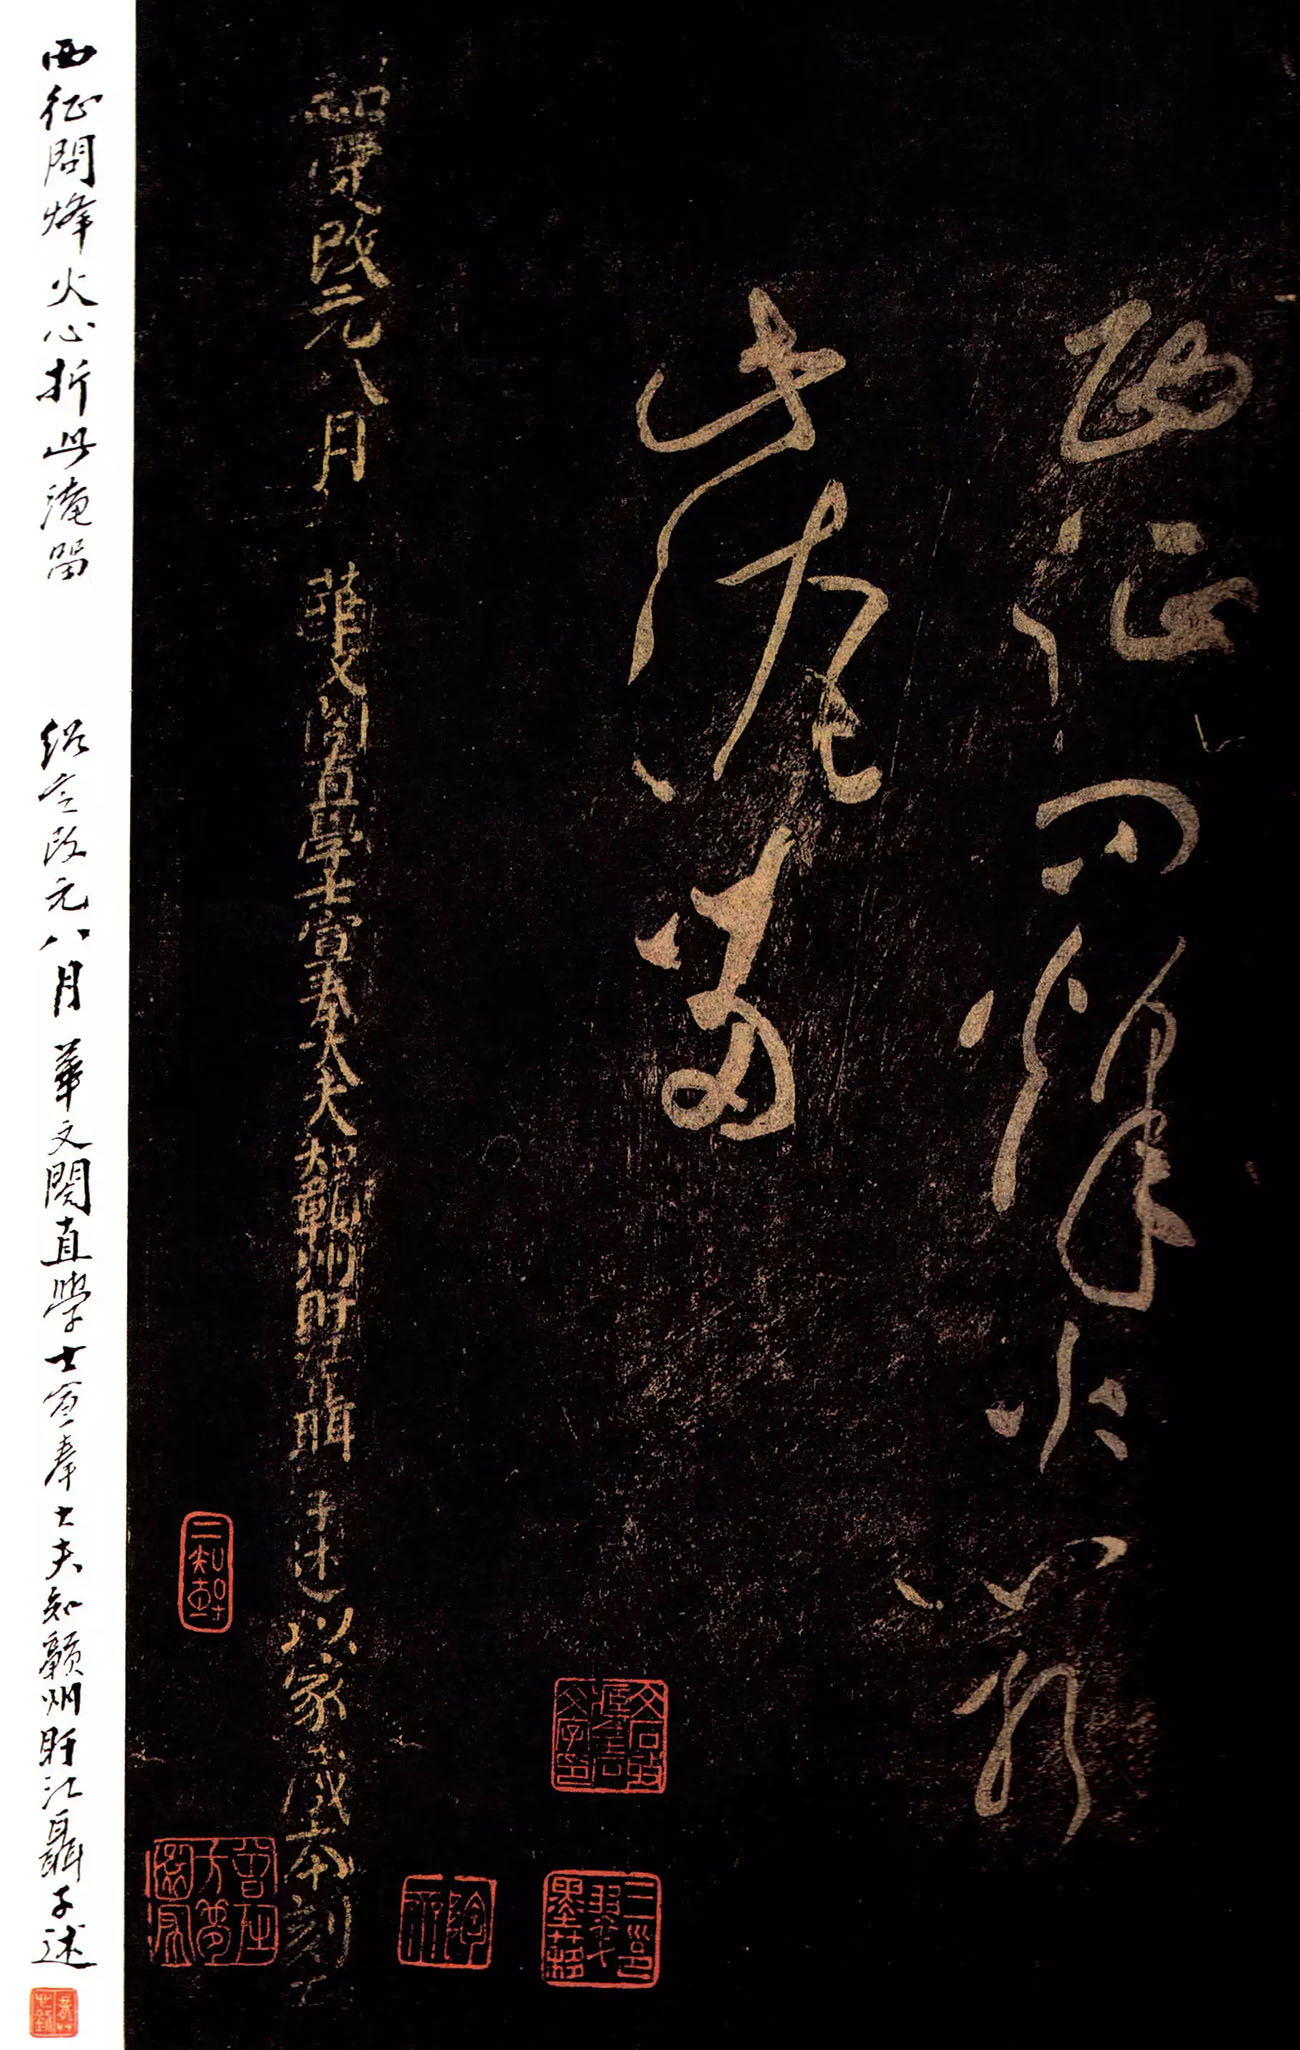 西征問烽火心折
此淹留
紹定改元八月 華文閣直學士宣奉大夫知贛州盱江聶子述以家藏本刻石
西征問烽火心折此淹留 紹定改元八月華文閣直學士宣奉大夫知贛州盱江聶子述
二知軒